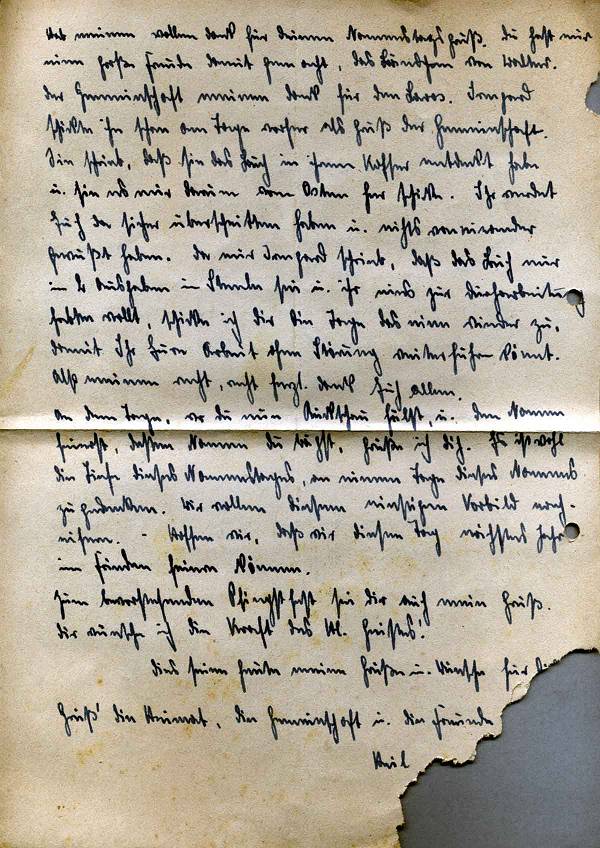 Hab meinen vollen Dank für Deinen Namenstagsgruß. Du hast mir
eine große Freude damit gemacht, das Bändchen von Walter.
Der Gemeinschaft meinen Dank für den Laros. Irmgard
schickte ihn schon am Tage vorher als Gruß der Gemeinschaft.
Sie schrieb, daß sie das Buch in ihrem Koffer entdeckt habe
u. sie es mir darum vom Osten her schicke. Ihr werdet
Euch da sicher überschnitten haben u. nichts voneinander
gewußt haben. Da mir Irmgard schrieb, daß das Buch nur
in 2 Ausgaben in sei u. ihr eins zur Durcharbeitung
hattet wollt, schicke ich Dir die Tage das eine wieder zu,
damit Ihr Eure Arbeit ohne Störung weiterführen könnt.
Also meinen recht, recht herzl. Dank Euch allen.
An dem Tage, wo Du nun Rückschau hältst, u. den Namen
feierst, dessen Namen Du trägst, grüße ich Dich. Es ist wohl
die Tiefe dieses Namenstages, an einem Tage dieses Namens
zu gedenken. Wir wollen diesem einzigen Vorbild nach-
eifern. - Hoffen wir, daß wir diesen Tag nächstes Jahr
im Frieden feiern können.
Zum bevorstehenden Pfingstfest sei Dir auch mein Gruß.
Dir wünsche ich die Kraft des hl. Geistes!
Dies seien heute meine Grüße u. Wünsche für
Grüß' die Heimat, die Gemeinschaft u. die Freunde
Heil